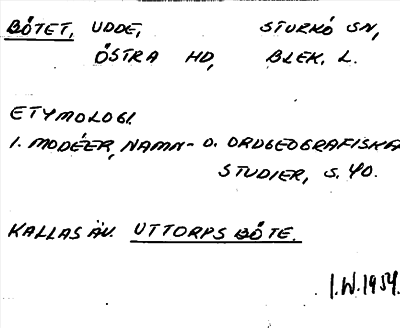 BÖTET, UDDE, STURKÖ SN,
ÖSTRA HD, BLEK. L.
ETYMOLOGI.
I. MODÉER, NAMN- O. ORDGEOGRAFISKA
STUDIER, S. 40.
KALLAS ÄV. UTTORPS BÖTE.
I.W. 1954.